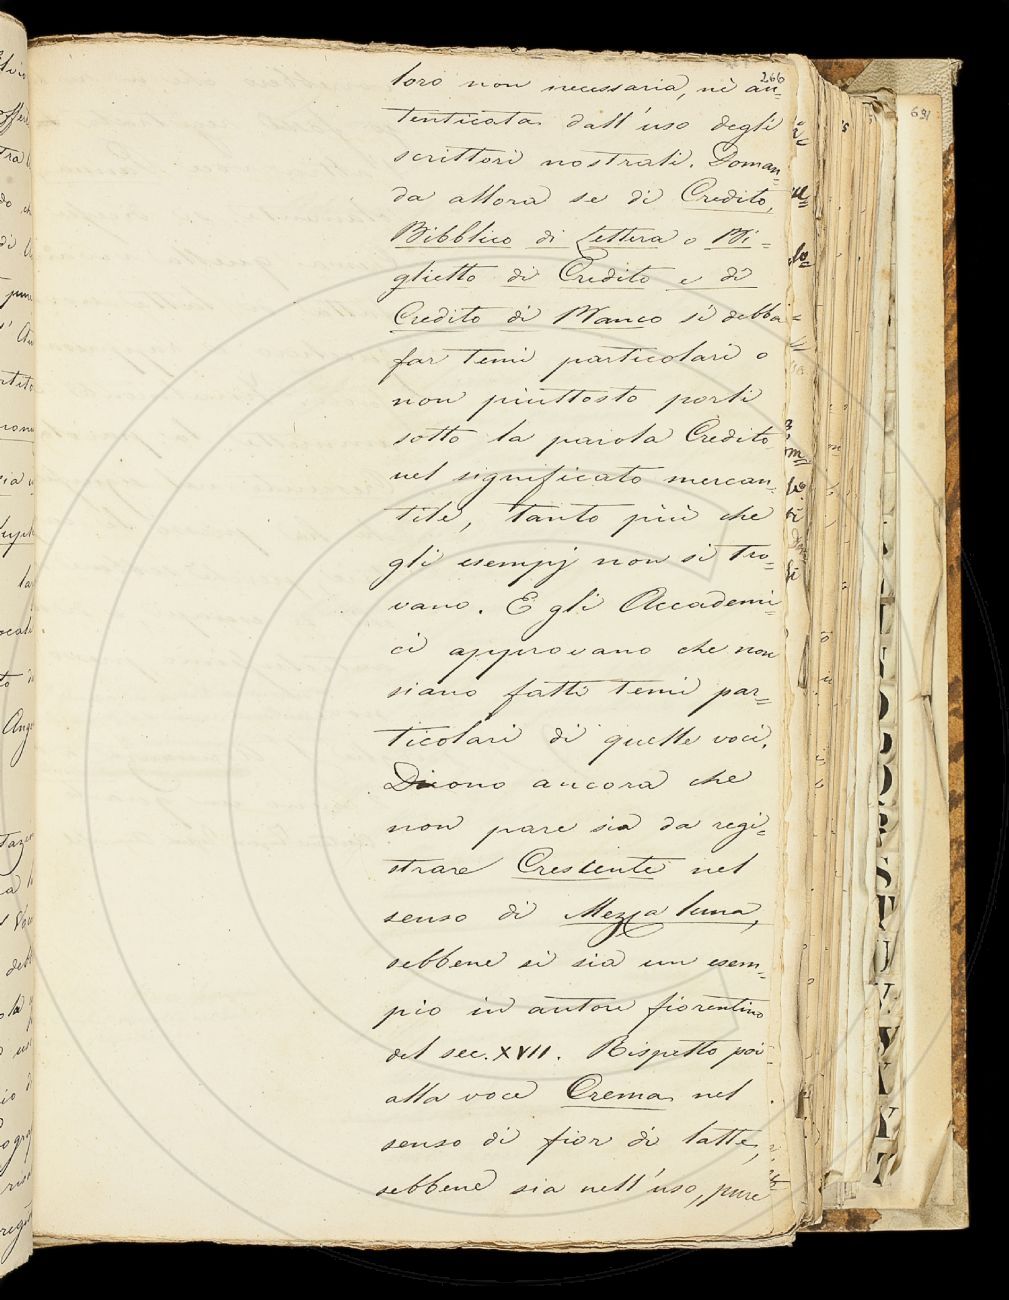 266
loro non necessaria, nè au=
tenticata dall'uso degli
scrittori nostrali. Doman=
da allora se di Credito,
Bibblico di Lettera o Bi=
glietto di Credito e di
Credito di Banco si debba
far temi particolari o
non piuttosto porli
sotto la parola Credito
nel significato mercan=
tile, tanto più che
gli esempj non si tro=
vano. E gli Accademi=
ci approvano che non
siano fatti temi par=
ticolari di quelle voci.
Dicono ancora che
non pare sia da regi=
strare Crescente nel
senso di Mezza luna,
sebbene si sia un esem=
pio in autore fiorentino
del sec. XVII. Rispetto poi
alla voce Crema nel
senso di fior di latte,
sebbene sia nell'uso, pure
691
S
T
U
V
Y